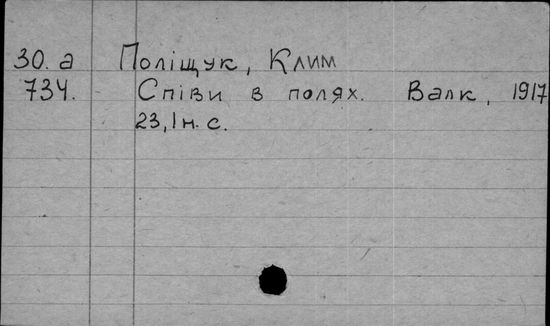 30.а Поліщук, Клим
734. Співи в полях. Валк, 1917
23, 1 н. с.